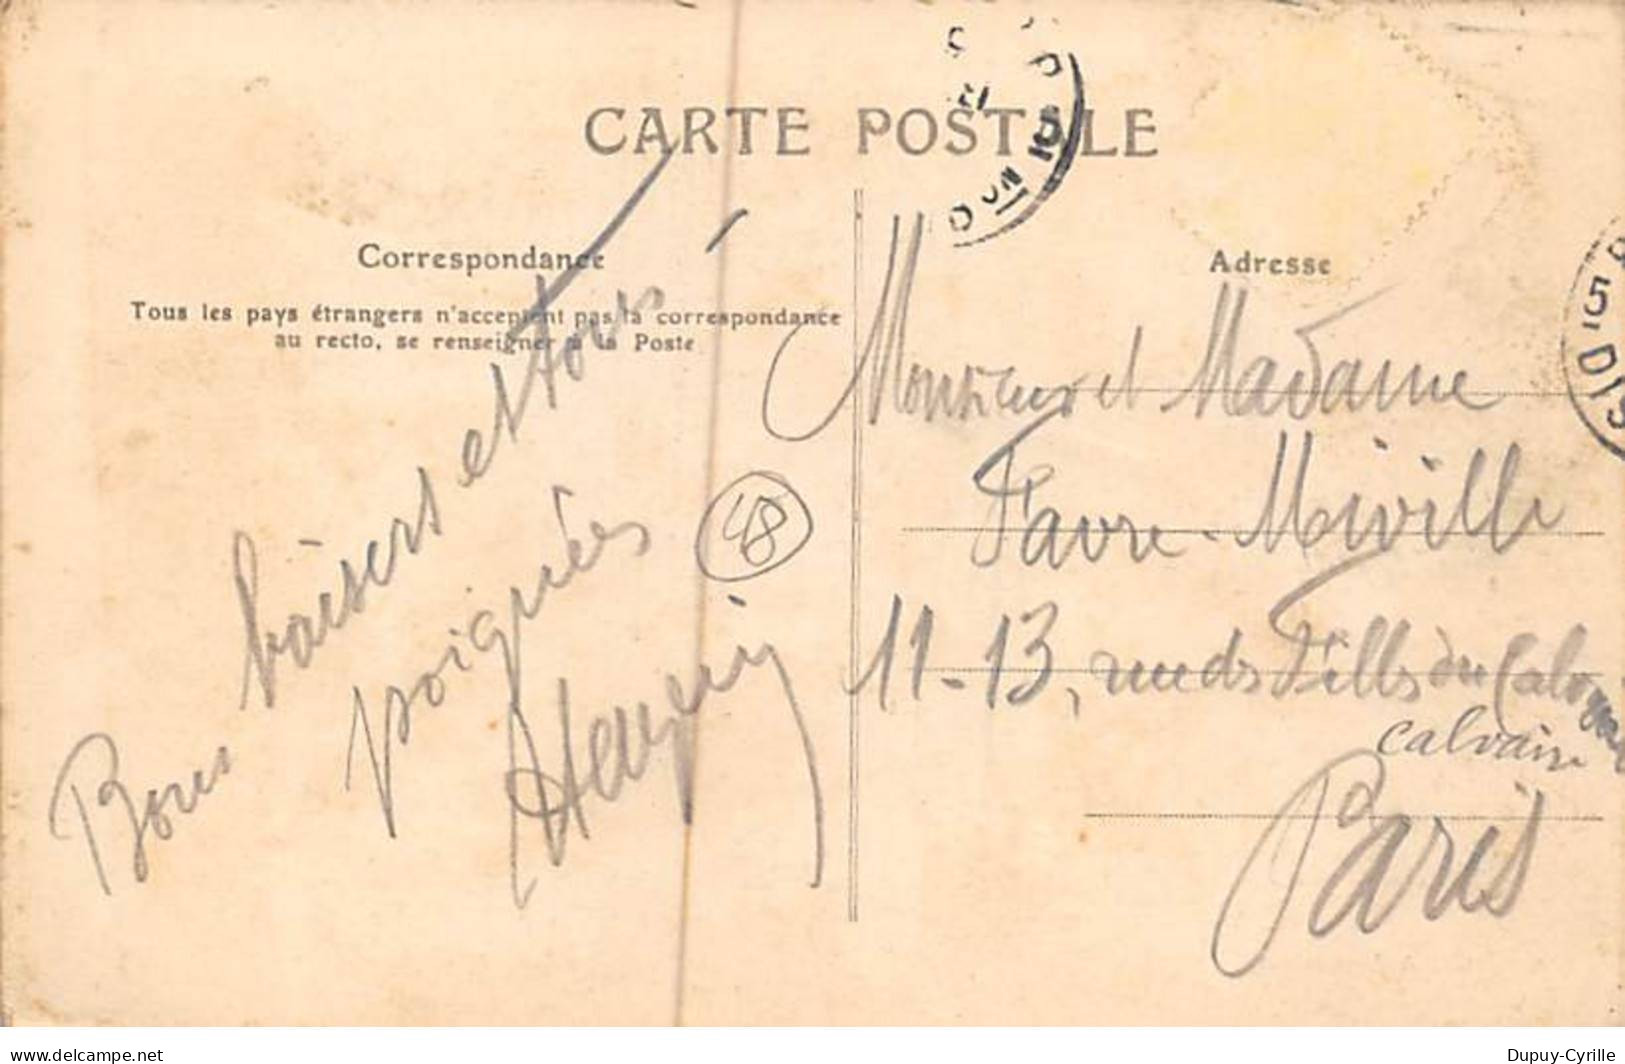 CARTE POSTALE
Correspondance
Tous les pays étrangers n'acceptent pas la correspondance
au recto, se renseigner à la Poste
Bons baisers et
poignées
48
Adresse
Monsieur et Madame
Favre-Miville
11-13, rue des Filles du
calvaire
Paris
5
DIS
delcampe.net
Dupuy-Cyrille